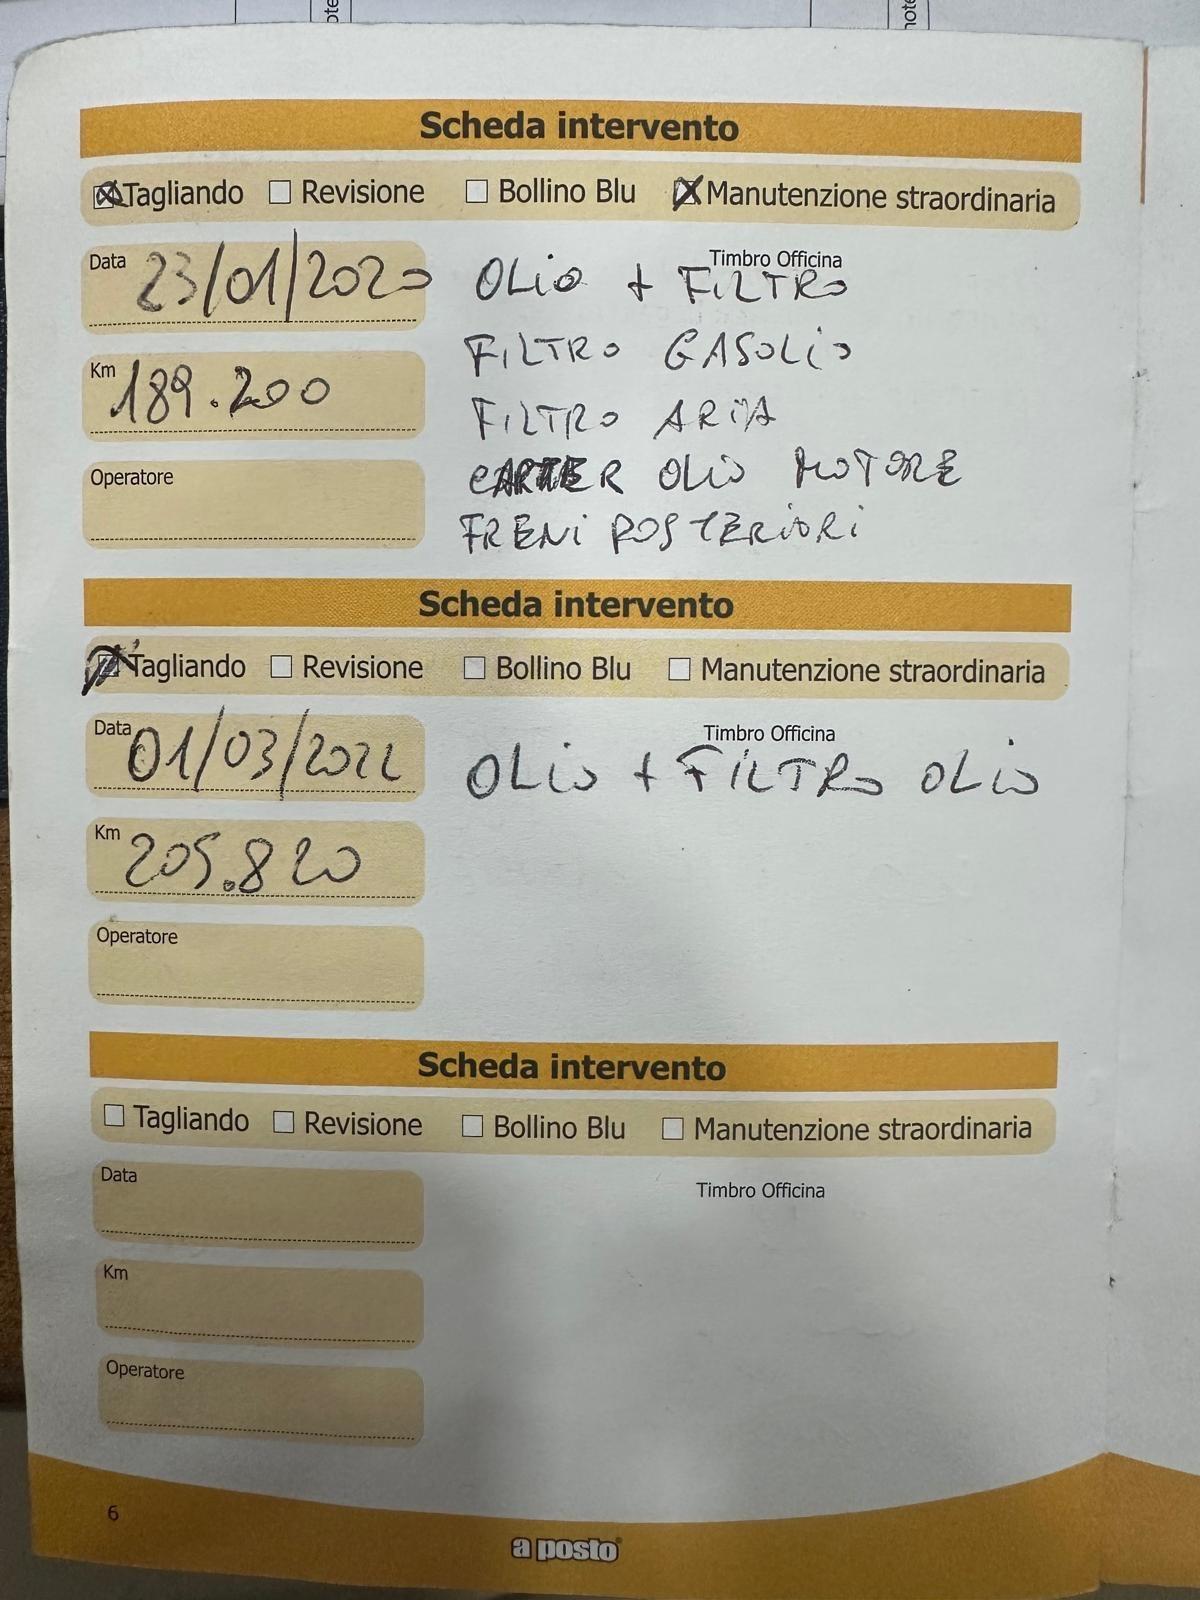 Scheda intervento
Tagliando Revisione Bollino Blu Manutenzione straordinaria
Data 23/01/2020
Timbro Officina
OLIO + FILTRO
Km 189.200
FILTRO GASOLIO
FILTRO ARIA
Operatore
CARTER OLIO MOTORE
FRENI POSTERIORI
Scheda intervento
Tagliando Revisione Bollino Blu Manutenzione straordinaria
Data 01/03/2022
Timbro Officina
OLIO + FILTRO OLIO
Km 205.820
Operatore
Scheda intervento
Tagliando Revisione Bollino Blu Manutenzione straordinaria
Data
Timbro Officina
Km
Operatore
6
a posto